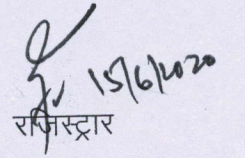 15/6/2020
राजिस्ट्रार